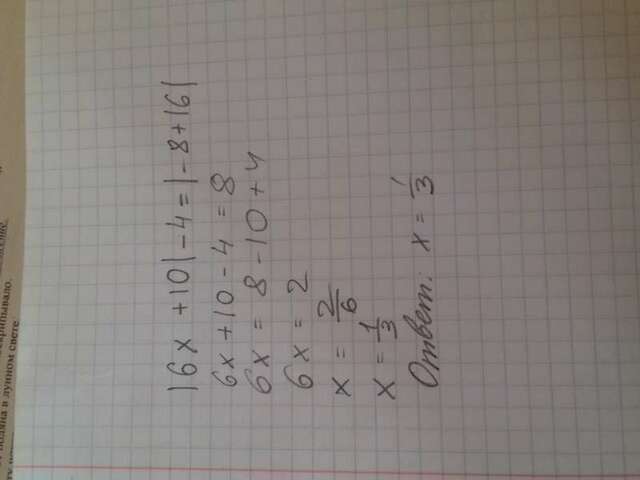 поляна в лунном свете
|6x + 10| - 4 = |- 8 + 16|
6x + 10 - 4 = 8
6x = 8 - 10 + 4
6x = 2
x = 2/6
x = 1/3
Ответ: x = 1/3